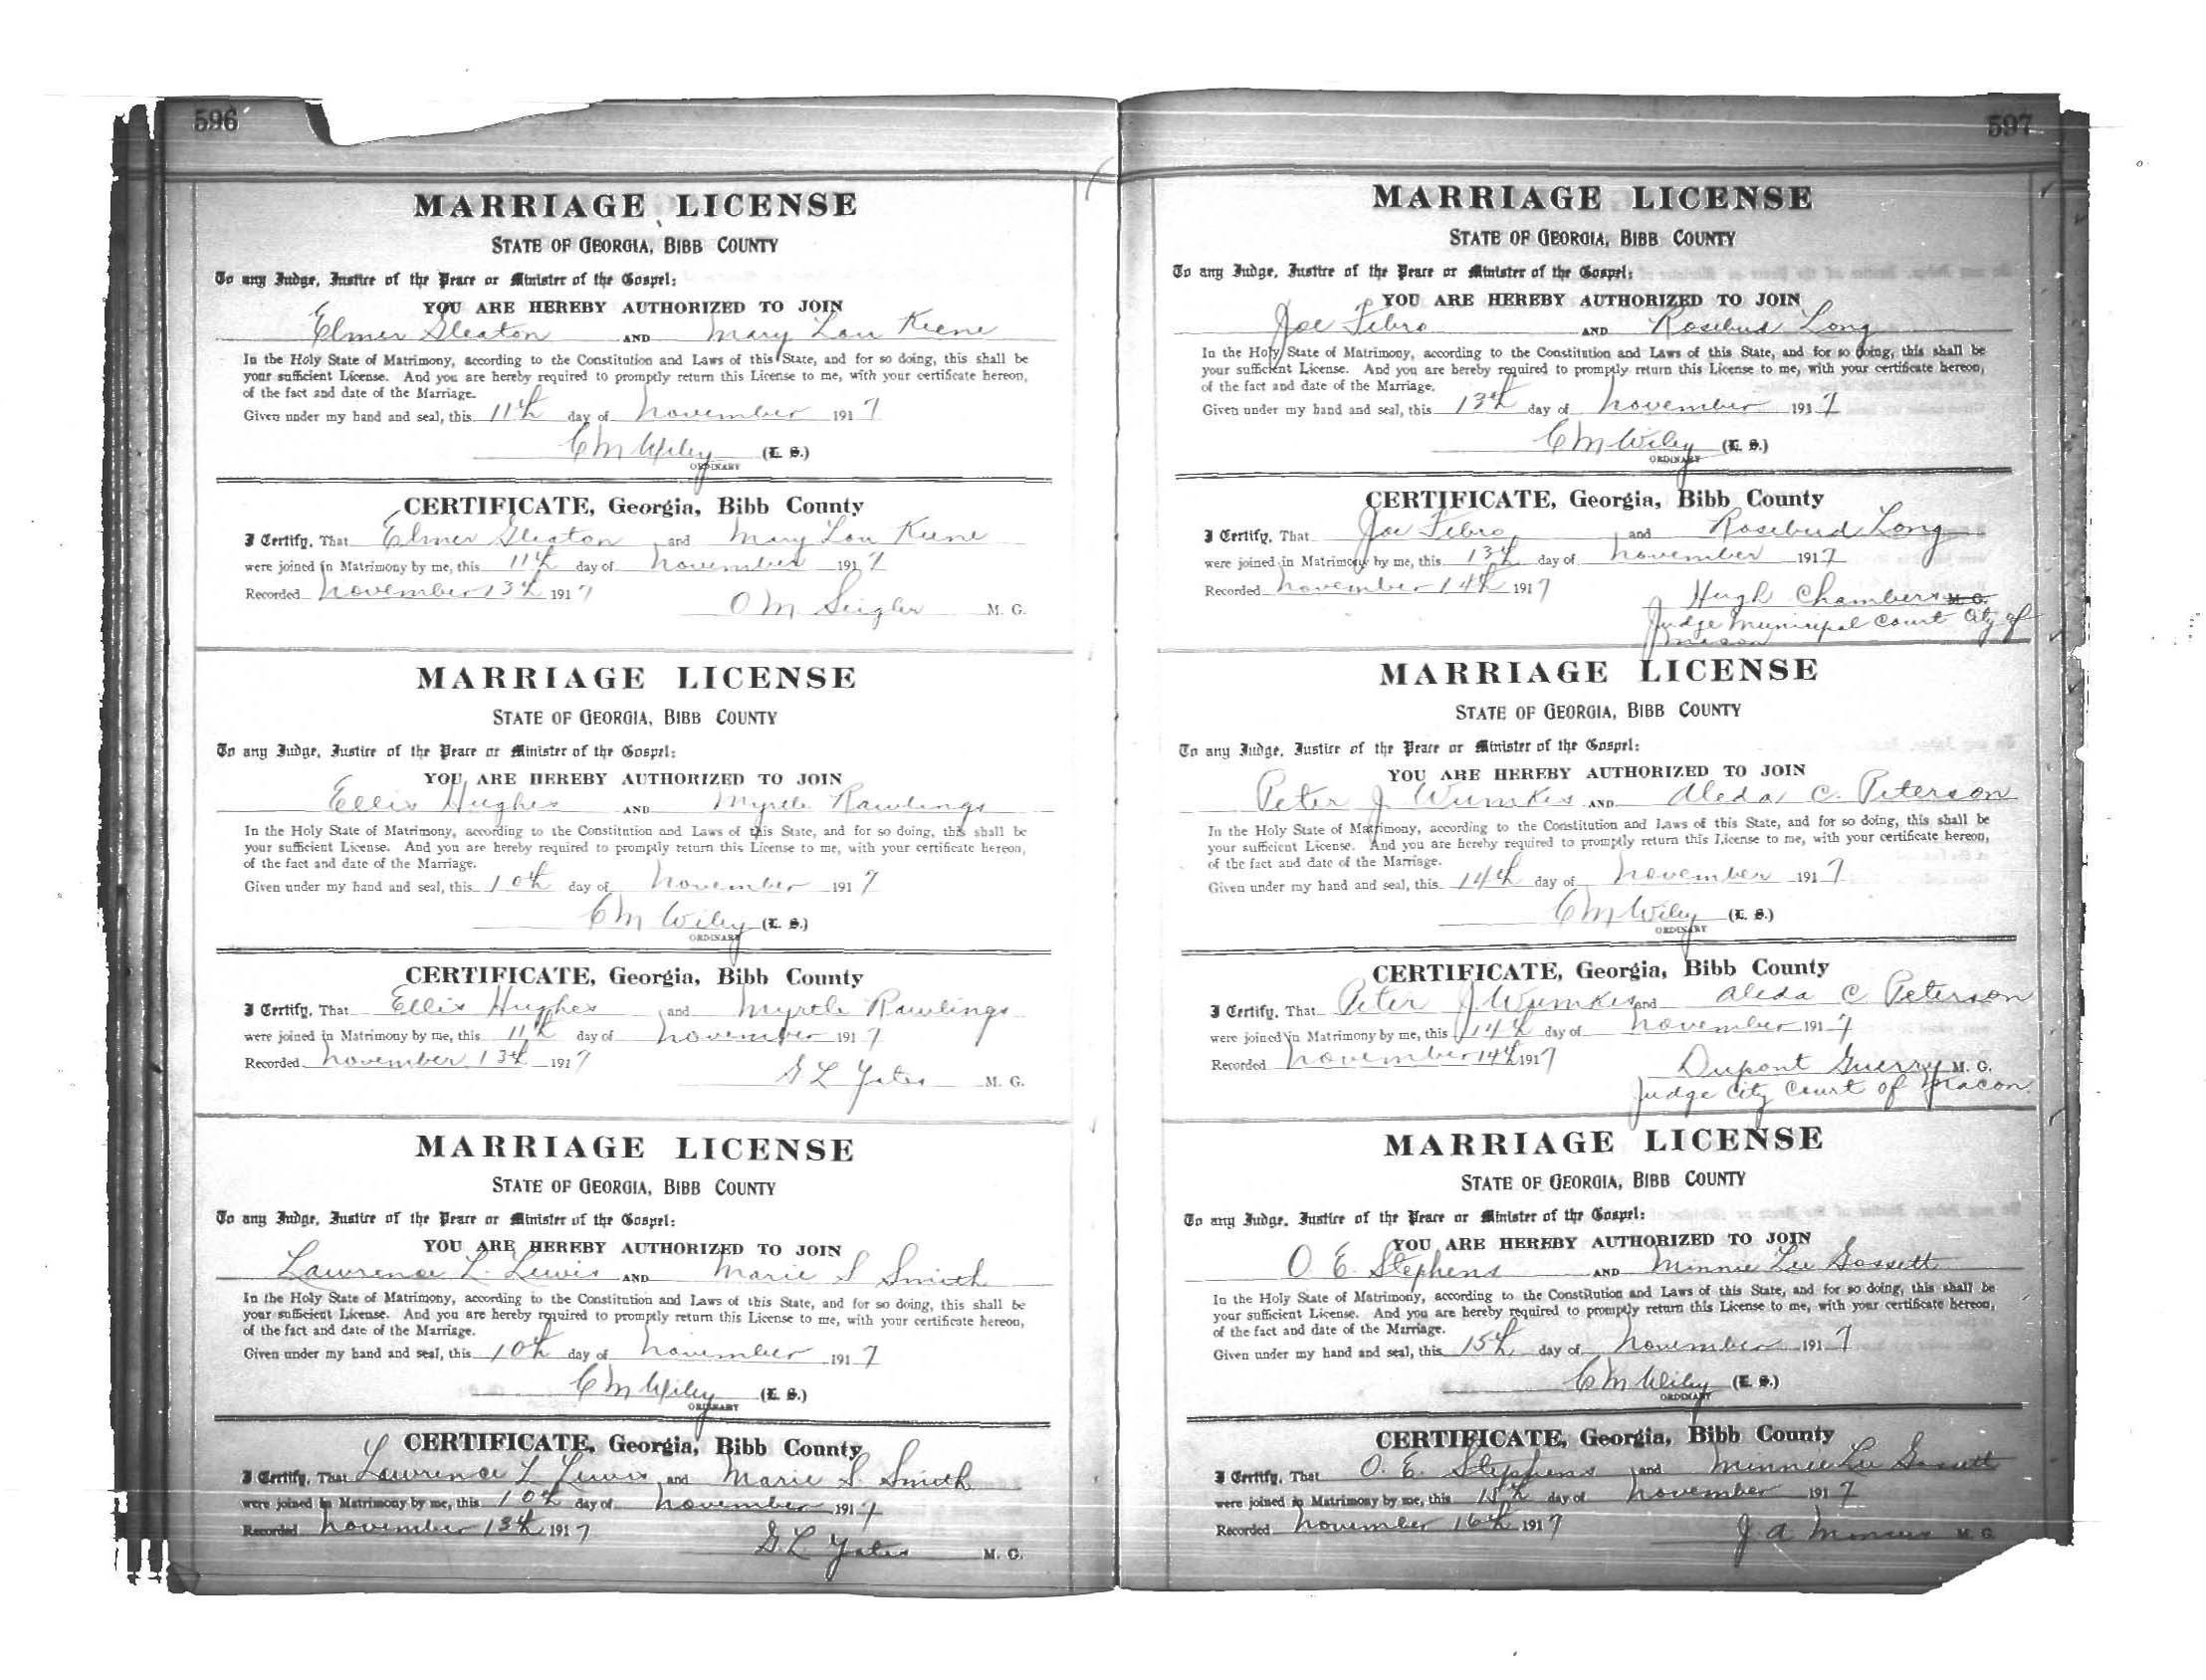 596
MARRIAGE LICENSE
STATE OF GEORGIA, BIBB COUNTY
To any Judge, Justice of the Peace or Minister of the Gospel:
YOU ARE HEREBY AUTHORIZED TO JOIN
Elmer Sleaton AND Mary Lou Keene
In the Holy State of Matrimony, according to the Constitution and Laws of this State, and for so doing, this shall be
your sufficient License. And you are hereby required to promptly return this License to me, with your certificate hereon,
of the fact and date of the Marriage.
Given under my hand and seal, this 11th day of November 1917
C M Wiley (L. S.)
ORDINARY
CERTIFICATE, Georgia, Bibb County
I Certify, That Elmer Sleaton and Mary Lou Keene
were joined in Matrimony by me, this 11th day of November 1917
Recorded November 13th 1917
O M Seigler M. G.
MARRIAGE LICENSE
STATE OF GEORGIA, BIBB COUNTY
To any Judge, Justice of the Peace or Minister of the Gospel:
YOU ARE HEREBY AUTHORIZED TO JOIN
Ellis Hughes AND Myrtle Rawlings
In the Holy State of Matrimony, according to the Constitution and Laws of this State, and for so doing, this shall be
your sufficient License. And you are hereby required to promptly return this License to me, with your certificate hereon,
of the fact and date of the Marriage.
Given under my hand and seal, this 10th day of November 1917
C M Wiley (L. S.)
ORDINARY
CERTIFICATE, Georgia, Bibb County
I Certify, That Ellis Hughes and Myrtle Rawlings
were joined in Matrimony by me, this 11th day of November 1917
Recorded November 13th 1917
G L Yates M. G.
MARRIAGE LICENSE
STATE OF GEORGIA, BIBB COUNTY
To any Judge, Justice of the Peace or Minister of the Gospel:
YOU ARE HEREBY AUTHORIZED TO JOIN
Lawrence L. Lewis AND Marie S Smith
In the Holy State of Matrimony, according to the Constitution and Laws of this State, and for so doing, this shall be
your sufficient License. And you are hereby required to promptly return this License to me, with your certificate hereon,
of the fact and date of the Marriage.
Given under my hand and seal, this 10th day of November 1917
C M Wiley (L. S.)
ORDINARY
CERTIFICATE, Georgia, Bibb County
I Certify, That Lawrence L Lewis and Marie S. Smith
were joined in Matrimony by me, this 10th day of November 1917
Recorded November 13th 1917
G L Yates M. G.
597
MARRIAGE LICENSE
STATE OF GEORGIA, BIBB COUNTY
To any Judge, Justice of the Peace or Minister of the Gospel:
YOU ARE HEREBY AUTHORIZED TO JOIN
Joe Febro AND Rosebud Long
In the Holy State of Matrimony, according to the Constitution and Laws of this State, and for so doing, this shall be
your sufficient License. And you are hereby required to promptly return this License to me, with your certificate hereon,
of the fact and date of the Marriage.
Given under my hand and seal, this 13th day of November 1917
C M Wiley (L. S.)
ORDINARY
CERTIFICATE, Georgia, Bibb County
I Certify, That Joe Febro and Rosebud Long
were joined in Matrimony by me, this 13th day of November 1917
Recorded November 14th 1917
Hugh Chambers M. G.
Judge Municipal Court City of
Macon
MARRIAGE LICENSE
STATE OF GEORGIA, BIBB COUNTY
To any Judge, Justice of the Peace or Minister of the Gospel:
YOU ARE HEREBY AUTHORIZED TO JOIN
Peter J Wumkes AND Aleda C. Peterson
In the Holy State of Matrimony, according to the Constitution and Laws of this State, and for so doing, this shall be
your sufficient License. And you are hereby required to promptly return this License to me, with your certificate hereon,
of the fact and date of the Marriage.
Given under my hand and seal, this 14th day of November 1917
C M Wiley (L. S.)
ORDINARY
CERTIFICATE, Georgia, Bibb County
I Certify, That Peter J. Wumkes and Aleda C Peterson
were joined in Matrimony by me, this 14th day of November 1917
Recorded November 14th 1917
Dupont Guerry M. G.
Judge City Court of Macon
MARRIAGE LICENSE
STATE OF GEORGIA, BIBB COUNTY
To any Judge, Justice of the Peace or Minister of the Gospel:
YOU ARE HEREBY AUTHORIZED TO JOIN
O E. Stephens AND Minnie Lee Gossett
In the Holy State of Matrimony, according to the Constitution and Laws of this State, and for so doing, this shall be
your sufficient License. And you are hereby required to promptly return this License to me, with your certificate hereon,
of the fact and date of the Marriage.
Given under my hand and seal, this 15th day of November 1917
C M Wiley (L. S.)
ORDINARY
CERTIFICATE, Georgia, Bibb County
I Certify, That O. E. Stephens and Minnie Lee Gossett
were joined in Matrimony by me, this 15th day of November 1917
Recorded November 16th 1917
J. A M. G.